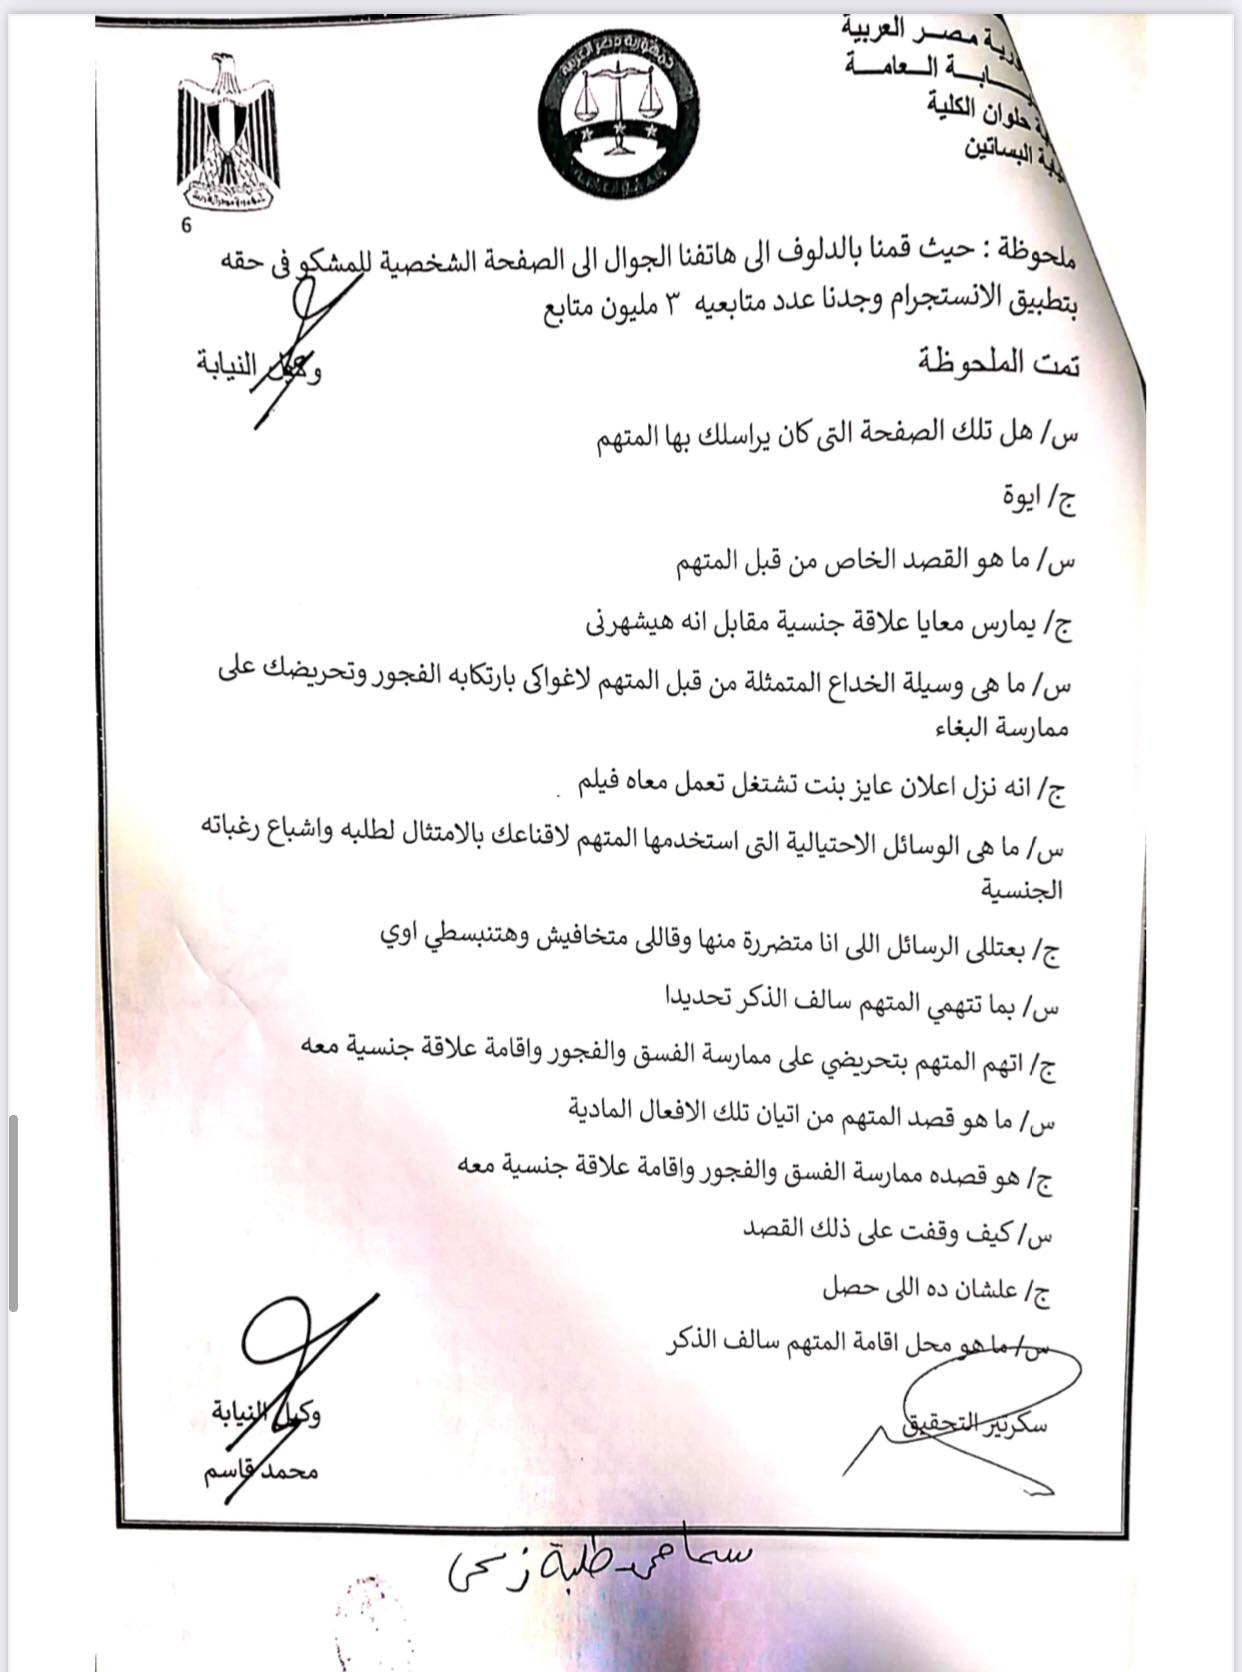 مصر العربية
العامة
حلوان الكلية
البساتين
جمهورية مصر العربية
6
ملحوظة : حيث قمنا بالدلوف الى هاتفنا الجوال الى الصفحة الشخصية للمشكو فى حقه
بتطبيق الانستجرام وجدنا عدد متابعيه ٣ مليون متابع
تمت الملحوظة
وكيل النيابة
س/ هل تلك الصفحة التى كان يراسلك بها المتهم
ج/ ايوة
س/ ما هو القصد الخاص من قبل المتهم
ج/ يمارس معايا علاقة جنسية مقابل انه هيشهرنى
س/ ما هى وسيلة الخداع المتمثلة من قبل المتهم لاغواكى بارتكابه الفجور وتحريضك على
ممارسة البغاء
ج/ انه نزل اعلان عايز بنت تشتغل تعمل معاه فيلم
س/ ما هى الوسائل الاحتيالية التى استخدمها المتهم لاقناعك بالامتثال لطلبه واشباع رغباته
الجنسية
ج/ بعتللى الرسائل اللى انا متضررة منها وقاللى متخافيش وهتنبسطي اوي
س/ بما تتهمي المتهم سالف الذكر تحديدا
ج/ اتهم المتهم بتحريضي على ممارسة الفسق والفجور واقامة علاقة جنسية معه
س/ ما هو قصد المتهم من اتيان تلك الافعال المادية
ج/ هو قصده ممارسة الفسق والفجور واقامة علاقة جنسية معه
س/ كيف وقفت على ذلك القصد
ج/ علشان ده اللى حصل
س/ ما هو محل اقامة المتهم سالف الذكر
سكرتير التحقيق
وكيل النيابة
محمد قاسم
طلبة